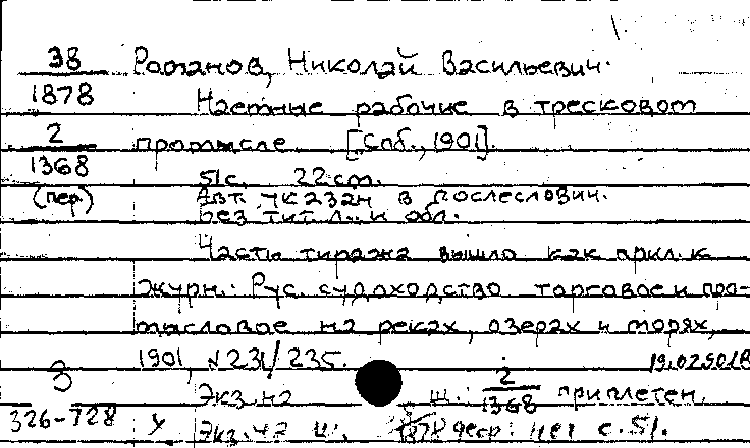 38 Романов, Николай Васильевич.
1878 Наемные рабочие в тресковом
2 промысле [Спб., 1901].
1368 51с. 22cm.
(пер.) Авт. указан в послеслови.
Без тит. л. и обл.
Часть тиража вышло как прил. к
журн.: Рус. судоходство торговое и про-
мысловое на реках, озерах и морях,
1901, N231/235. 19.02501В
З Экз. на ш.: 2/1368 приплетен.
326-728 У Экз. на ш. 1878 дефр: нет с. 51.